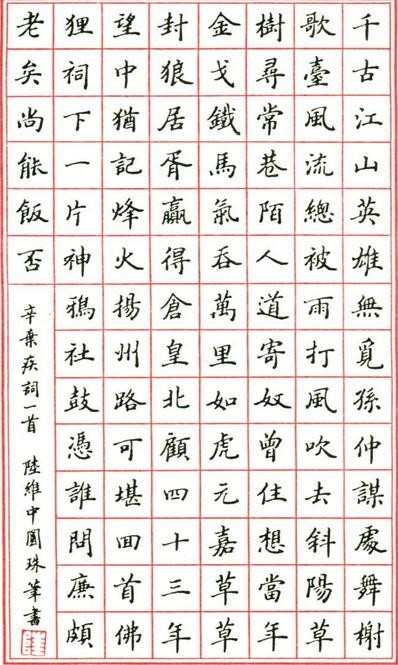 千古江山英雄無覓孫仲謀處舞榭
歌臺風流總被雨打風吹去斜陽草
樹尋常巷陌人道寄奴曾住想當年
金戈鐵馬氣吞萬里如虎元嘉草草
封狼居胥贏得倉皇北顧四十三年
望中猶記烽火揚州路可堪囬首佛
狸祠下一片神鴉社鼓憑誰問廉頗
老矣尚能飯否
辛棄疾詞一首 陸維中圓珠筆書